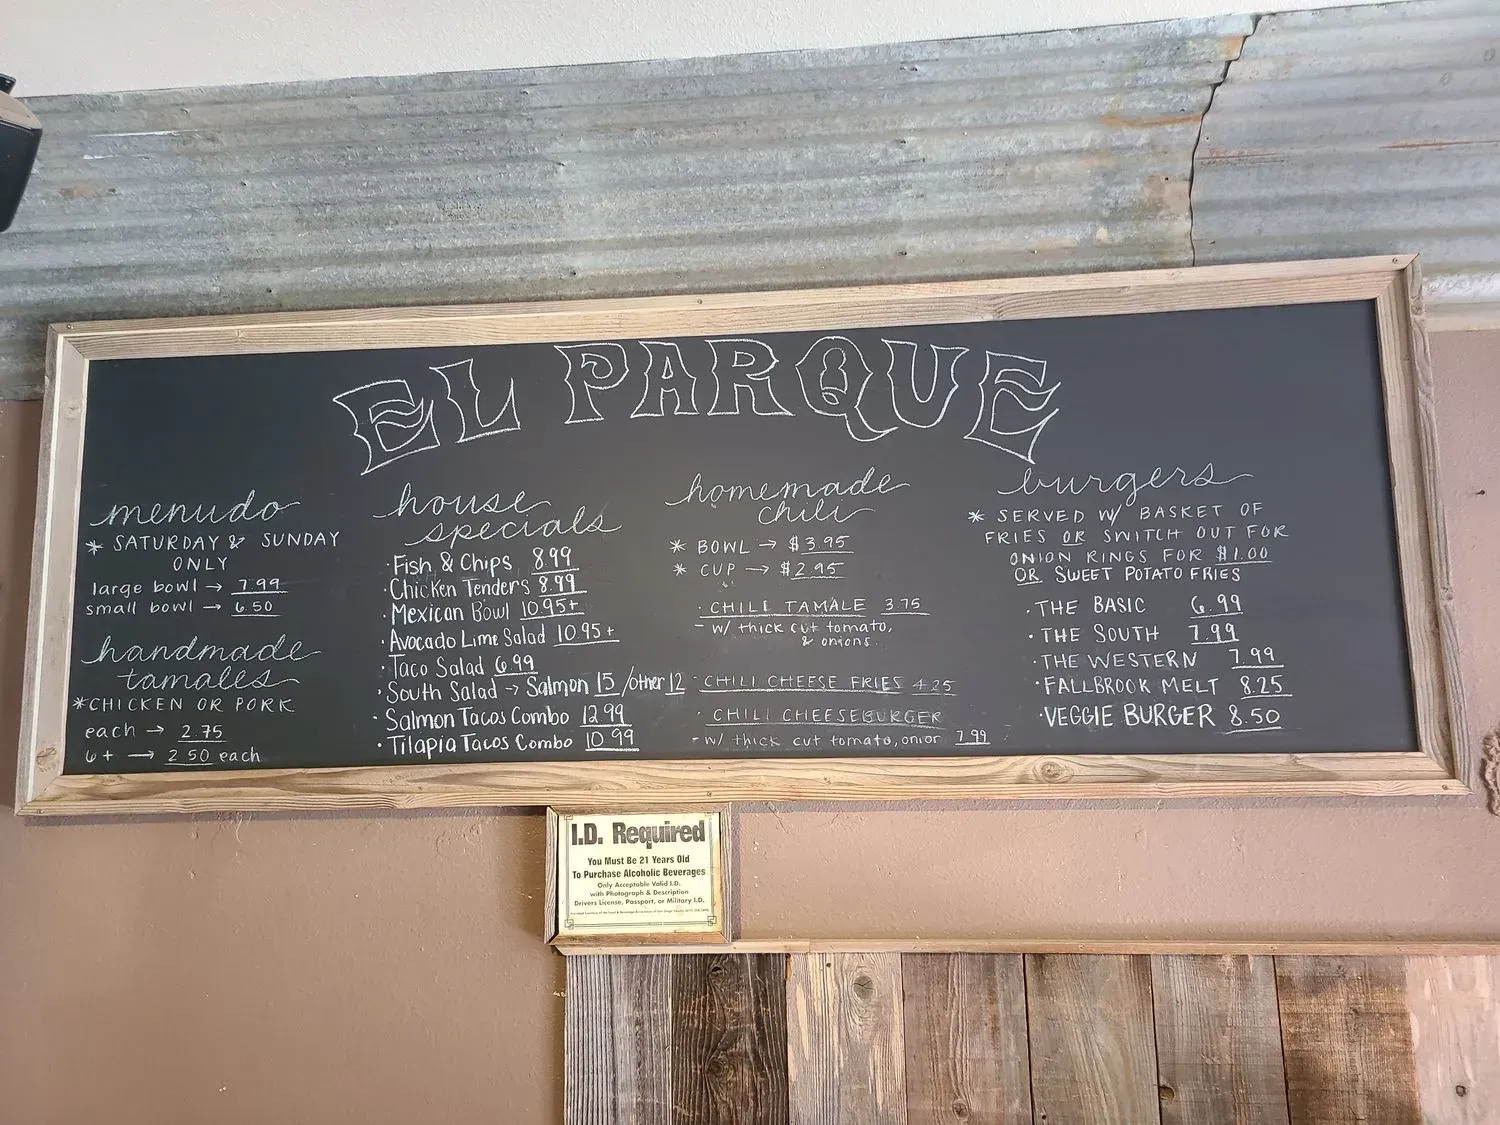 EL PARQUE
menudo
* SATURDAY & SUNDAY
ONLY
large bowl → 7.99
small bowl → 6.50
handmade
tamales
*CHICKEN OR PORK
each → 2.75
6+ → 2.50 each
house
specials
· Fish & Chips 8.99
· Chicken Tenders 8.99
· Mexican Bowl 10.95+
· Avocado Lime Salad 10.95+
· Taco Salad 6.99
· South Salad → Salmon 15 /other 12
· Salmon Tacos Combo 12.99
· Tilapia Tacos Combo 10.99
homemade
chili
* BOWL → $3.95
* CUP → $2.95
· CHILI TAMALE 3.75
- w/ thick cut tomato,
& onions.
· CHILI CHEESE FRIES 4.25
· CHILI CHEESEBURGER
- w/ thick cut tomato, onion 7.99
burgers
* SERVED W/ BASKET OF
FRIES OR SWITCH OUT FOR
ONION RINGS FOR $1.00
OR SWEET POTATO FRIES
· THE BASIC 6.99
· THE SOUTH 7.99
· THE WESTERN 7.99
· FALLBROOK MELT 8.25
· VEGGIE BURGER 8.50
I.D. Required
You Must Be 21 Years Old
To Purchase Alcoholic Beverages
Only Acceptable Valid I.D.
with Photograph & Description
Drivers License, Passport, or Military I.D.